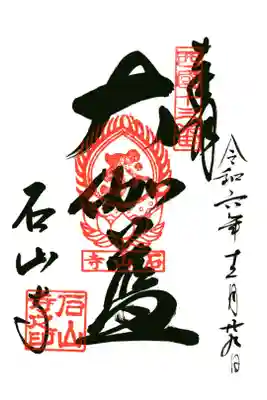 奉拝
西国十三番
大伽藍
石山寺
令和六年
月廿九日
石山寺
石山寺印